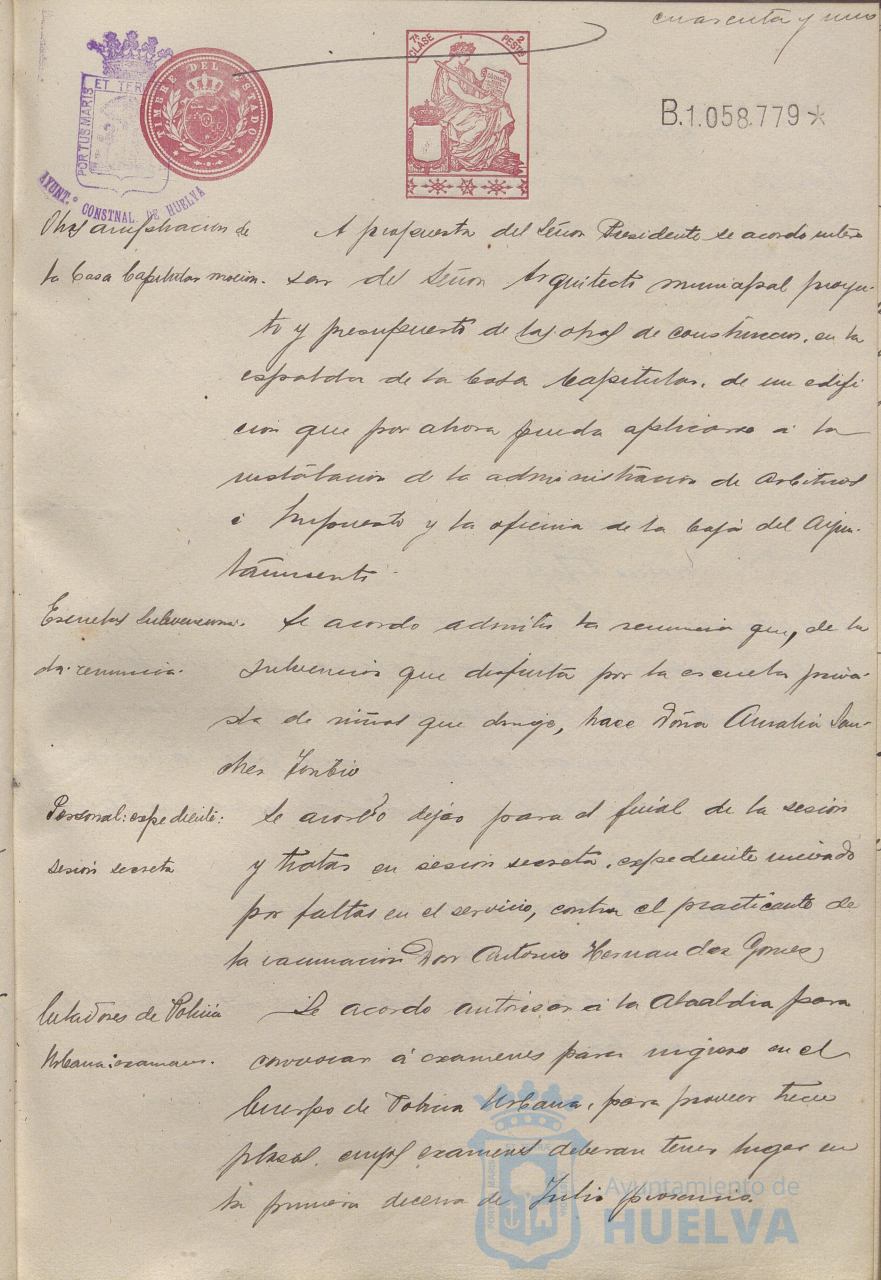 cuarenta y uno
PORTUS MARIS ET TERRE
AYUNT.º CONSTNAL. DE HUELVA
TIMBRE DEL ESTADO
7ª CLASE 2 PESTS
B.1.058.779*
Obras ampliacion de
la Casa Capitular mocion.
A propuesta del Señor Presidente se acordo intere
sar del Señor Arquitecto municipal proyec-
to y presupuesto de las obras de construccion, en la
espalda de la Casa Capitular, de un edifi
cion que por ahora pueda aplicarse a la
instalacion de la administracion de arbitrios
é Impuesto y la oficina de la Caja del Ayun-
tamiento.
Escuelas subvenciona-
da: renuncia.
Se acordo admitir la renuncia que, de la
subvencion que disfruta por la escuela priva-
da de niños que dirije, hace Doña Amalia San-
chez Toribio
Personal: expediente:
sesión secreta
Se acordó dejar para el final de la sesión
y tratar en sesión secreta, expediente incoado
por faltas en el servicio, contra el practicante de
la vacunacion Don Antonio Hernandez Gomez
Celadores de Policia
Urbana: examenes.
Se acordo autorisar á la Alcaldia para
convocar á examenes para ingreso en el
Cuerpo de Policia Urbana, para proveer trece
plasas, cuyos examenes deberan tener lugar en
la primera decena de Julio proximo.
Ayuntamiento de
HUELVA